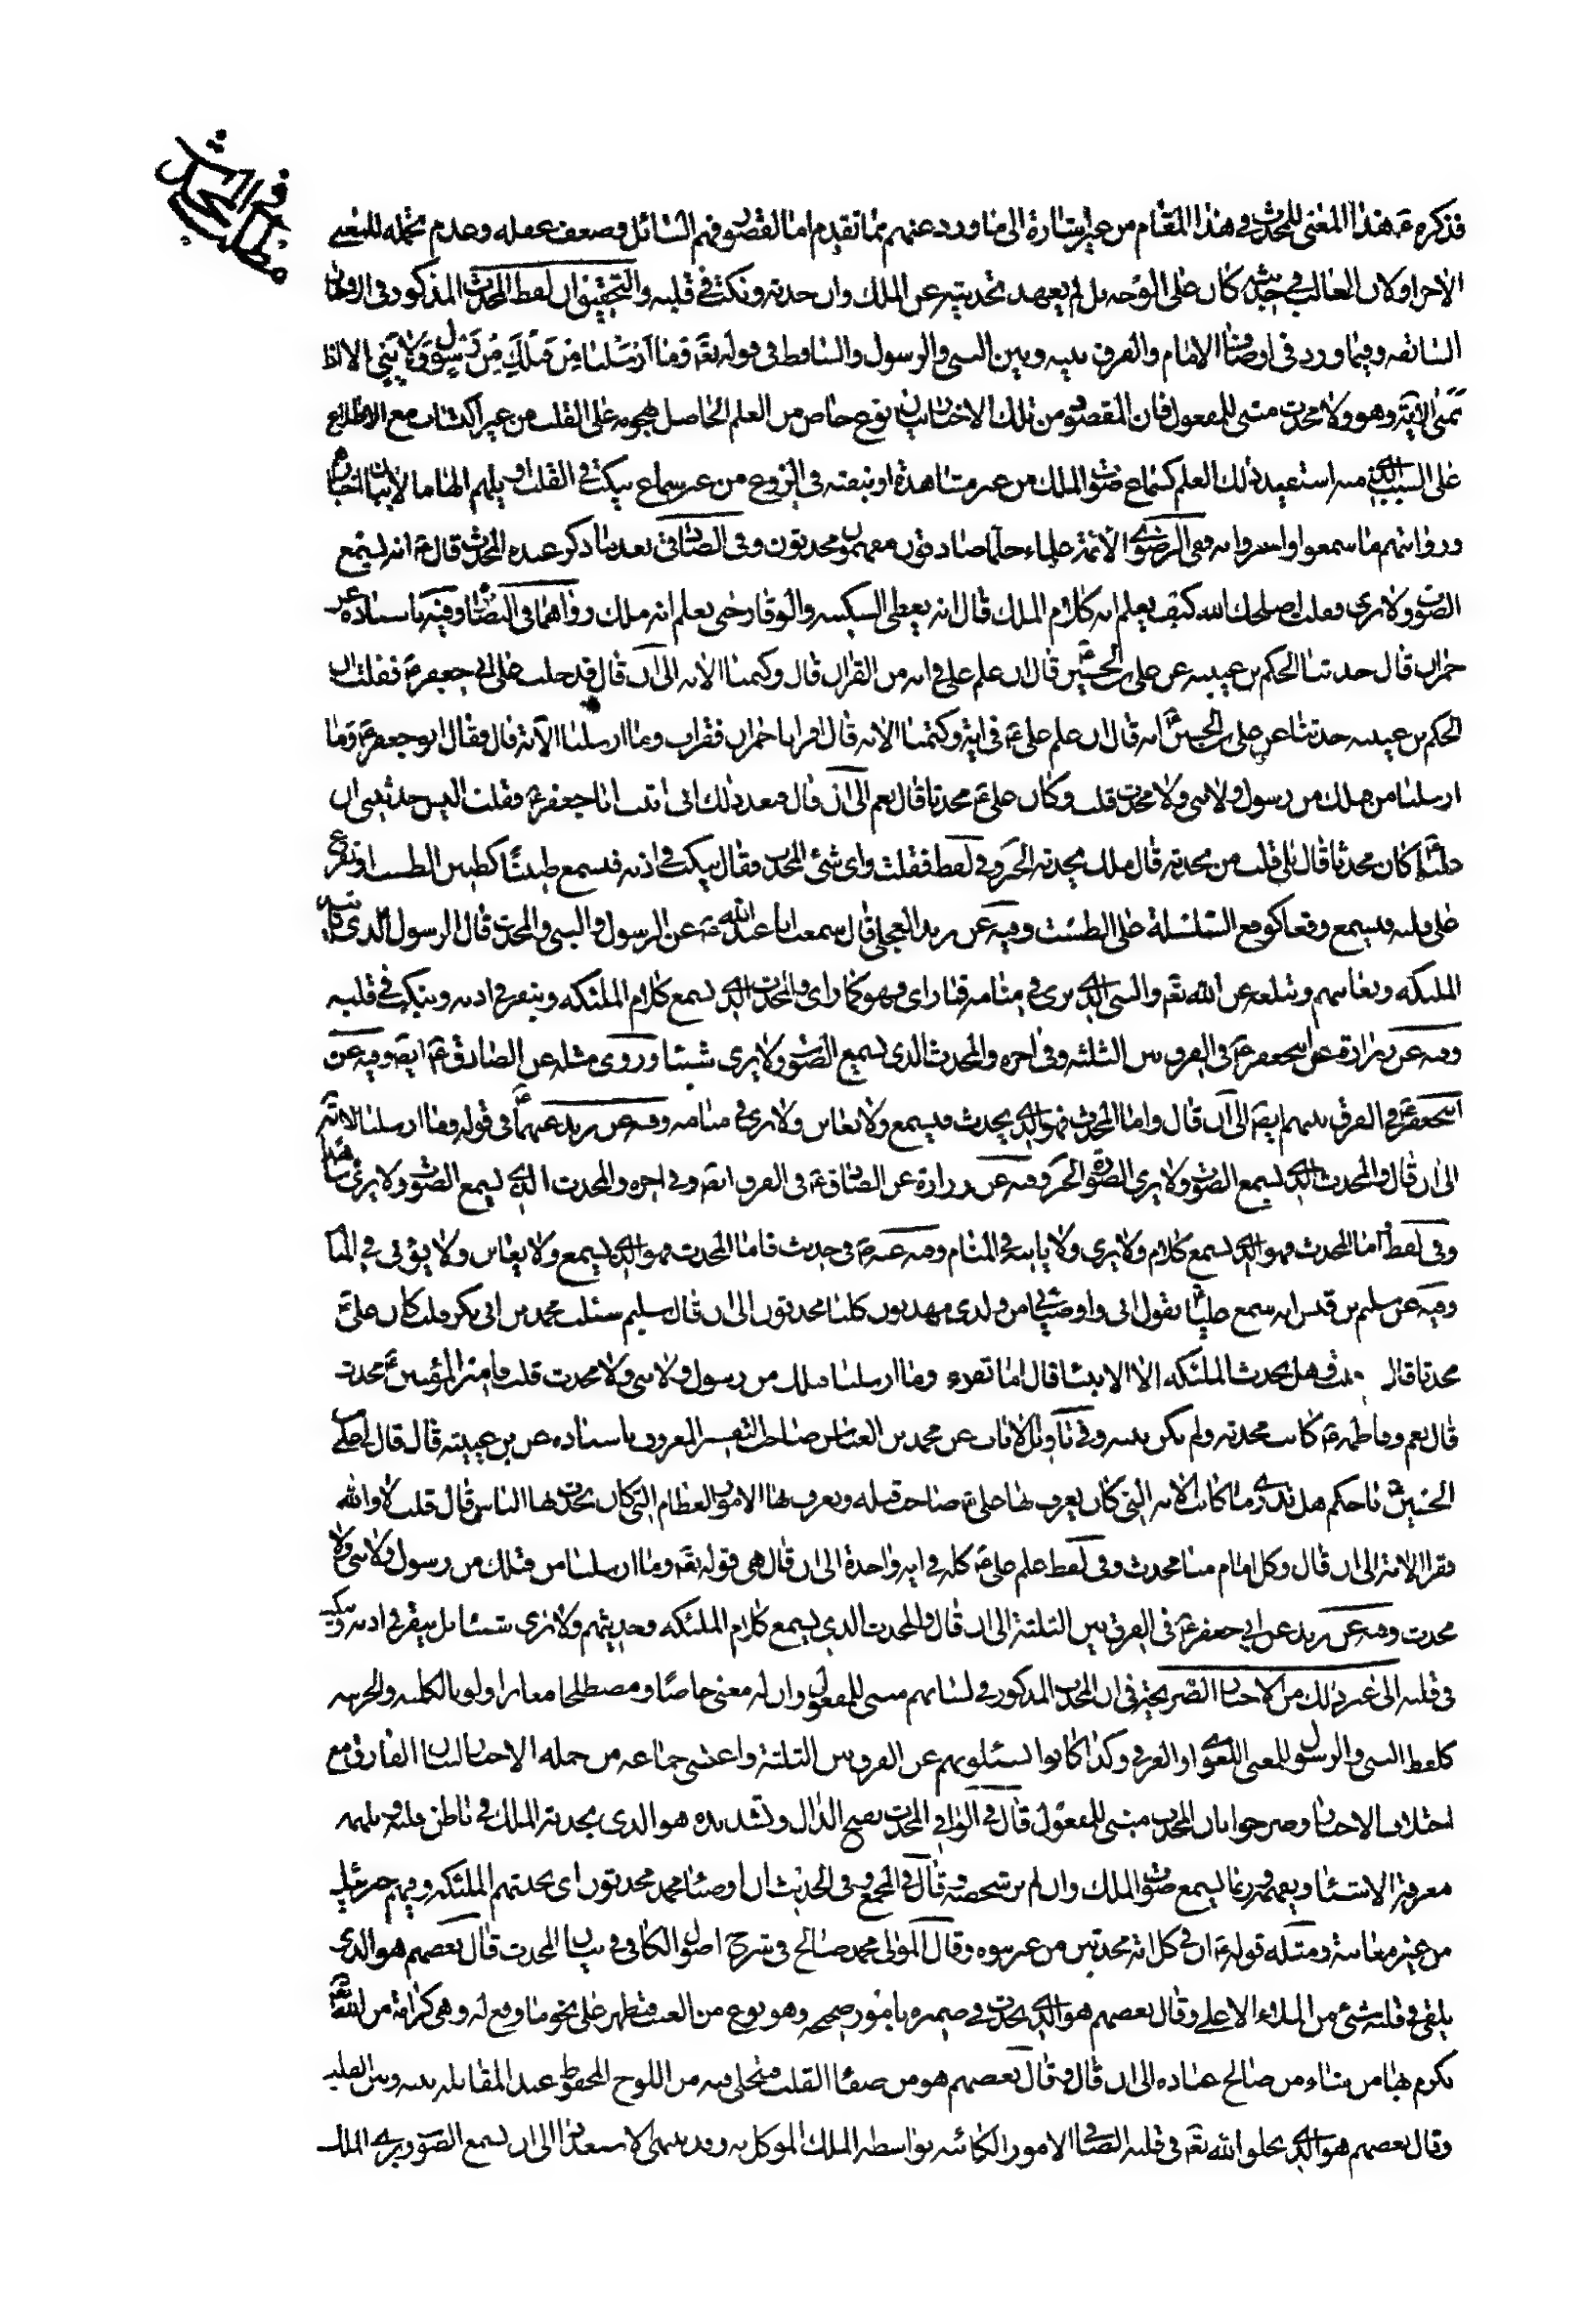 فذكره ع هذا المعنى للمحدث في هذا المقام من غير اشارة الى ما ورد عنهم مما تقدم اما لقصور فهم السائل وضعف عقله وعدم تحمله للمعنى
الاخر او لان الغالب في حديثه كان على الوجه بل لم يعهد تحديثه عن الملك وان حدثه ونكت في قلبه والتحقيق ان لفظ المحدث المذكور في الروايات
السابقه وفيما ورد في اوصاف الامام والفرق بينه وبين النبى والرسول والساقط في قوله تعالى وما ارسلنا من قبلك من رسول ولا نبي الا اذا
تمنى الاية وهو ولا محدث مبنى للمفعول فان المقصود من تلك الاخبار بيان نوع خاص من العلم الحاصل بهجومه على القلب من غير اكتساب مع الاطلاع
على السبب الذي منه استفيد ذلك العلم كسماع صوت الملك من غير مشاهدة او نفثه في الروع من غير سماع نكت في القلب او يلهم الهاما لا بيان
ورواتهم ما سمعوا وفي الرضوي الائمة علماء حلماء صادقون مفهمون محدثون وفي الصافي بعد ما ذكر عنده المحدث قال ع انه يسمع
الصوت ولا يرى فقلت اصلحك الله كيف يعلم انه كلام الملك قال انه يعطى السكينه والوقار حتى يعلم انه ملك رواهما في البصائر وفيه باسناده عن
حمران قال حدثنا الحكم بن عيينه عن علي بن الحسين قال ان علم علي في ايه من القران قال وكتمنا الايه الى ان قال فدخلت على ابى جعفر ع فقلت ان
الحكم بن عيينه حدثنا عن علي بن الحسين انه قال ان علم علي ع في اية وكتمنا الايه قال اقرا يا حمران فقرات وما ارسلنا الاية قال فقال ابو جعفر ع وما
ارسلنا من قبلك من رسول ولا نبى ولا محدث قلت وكان علي ع محدثا قال نعم الى ان قال فبعد ذلك انى اتيت ابا جعفر ع فقلت اليس حدثتنى ان
عليا كان محدثا قال بلى قلت من يحدثه قال ملك يحدثه الخبر وفي لفظ فقلت واى شئ المحدث فقال ينكت في اذنه فيسمع طنينا كطنين الطست او يقرع
على قلبه فيسمع وقعا كوقع السلسلة على الطست وفيه عن بريد العجلي قال سمعت ابا عبد الله ع عن الرسول والنبى والمحدث قال الرسول الذى تاتيه
الملئكه ويعاينهم وتبلغه عن الله تعالى والنبى الذي يرى في منامه فما راى فهو كما راى والمحدث الذي يسمع كلام الملئكه وينقر في اذنه وينكت في قلبه
وفيه عن زرارة عن ابيجعفر ع في الفرق بين الثلثه وفي اخره والمحدث الذى يسمع الصوت ولا يرى شيئا وروى مثله عن الصادق ع ايضا وفيه عن
ابيجعفر ع في الفرق بينهم ايضا الى ان قال واما المحدث فهو الذي يحدث فيسمع ولا يعاين ولا يرى في منامه وفيه عن بريد عنهما في قوله وما ارسلنا الاية
الى ان قال والمحدث الذي يسمع الصوت ولا يرى الصورة الخبر وفيه عن زرارة عن الصادق ع في الفرق ايضا وفي اخره والمحدث الذي يسمع الصوت ولا يرى شاهدا
وفي لفظ اما المحدث فهو الذي يسمع كلام ولا يرى ولا ياتيه في المنام وفيه عنه ع في حديث فاما المحدث فهو الذي يسمع ولا يعاين ولا يؤتى في المنام
وفيه عن سليم بن قيس انه سمع عليا يقول انى واوصيائي من ولدى مهديون كلنا محدثون الى ان قال سليم سئلت محمد بن ابى بكر قلت كان علي ع
محدثا قال وهل يحدث الملئكه الا الانبياء قال اما تقرء وما ارسلنا من قبلك من رسول ولا نبى ولا محدث قلت فامير المؤمنين ع محدث
قال نعم وفاطمه ع كانت محدثه ولم تكن نبيه وفي تاويل الايات عن محمد بن العباس صاحب التفسير المعروف باسناده عن بن عيينه قال قال لى علي بن
الحسين ع يا حكم هل تدرى ما كانت الايه التي كان يعرف بها علي ع صاحب قتله ويعرف بها الامور العظام التي كان يحدث بها الناس قال قلت لا والله
فقرا الاية الى ان قال وكل امام منا محدث وفي لفظ علم علي ع كله في ايه واحدة الى ان قال هي قوله تعالى وما ارسلنا من قبلك من رسول ولا نبى ولا
محدث وفيه عن بريد عن ابي جعفر ع في الفرق بين الثلثة الى ان قال والمحدث الذي يسمع كلام الملئكه وحديثهم ولا يرى شيئا بل ينقر في اذنه وينكت
في قلبه الى غير ذلك من الاخبار الصريحة في ان المحدث المذكور في لسانهم مبنى للمفعول وان له معنى خاصا ومصطلحا مغايرا ولو بالكليه والجزئيه
كلفظ النبى والرسول للمعنى اللغوي او العرفي وكذا كانوا يسئلونهم عن الفرق بين الثلثة واعتنى جماعه من حمله الاخبار لبيان الفارق مع
اختلاف الاخبار وصرحوا بان المحدث مبنى للمفعول قال في الوافي المحدث بفتح الدال وتشديده هو الذى يحدثه الملك في باطن قلبه ويلهمه
معرفة الاشياء ويفهمه وربما يسمع صوت الملك وان لم ير شخصه وقال في المجمع وفي الحديث ان اوصياء محمد محدثون اى يحدثهم الملئكه وفيهم جبرئيل
من غير معاينة ومثله قوله ع ان في كل امة محدثين من غير نبوه وقال المولى محمد صالح في شرح اصول الكافي في بيان المحدث قال بعضهم هو الذى
يلقى في قلبه شئ من الملاء الاعلى وقال بعضهم هو الذي يحدث في ضميره بامور صحيحه وهو نوع من الغيب فتظهر على نحو ما وقع له وهى كرامة من الله تعالى
يكرم بها من يشاء من صالح عباده الى ان قال وقال بعضهم هو من صفاء القلب فيتجلى فيه من اللوح المحفوظ عند المقابله بينه وبين القلب
وقال بعضهم هو الذي يخلق الله تعالى في قلبه الصافي الامور الكائنه بواسطه الملك الموكل به وقد ينتهى الاستعداد الى ان يسمع الصوت ويرى الملك